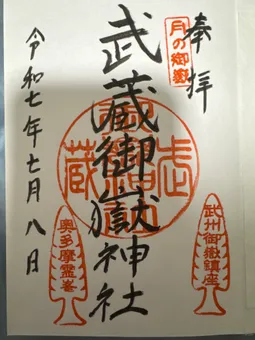 奉拝
月の御嶽
武蔵御嶽神社
武州御嶽鎮座
奥多摩霊峯
令和七年七月八日